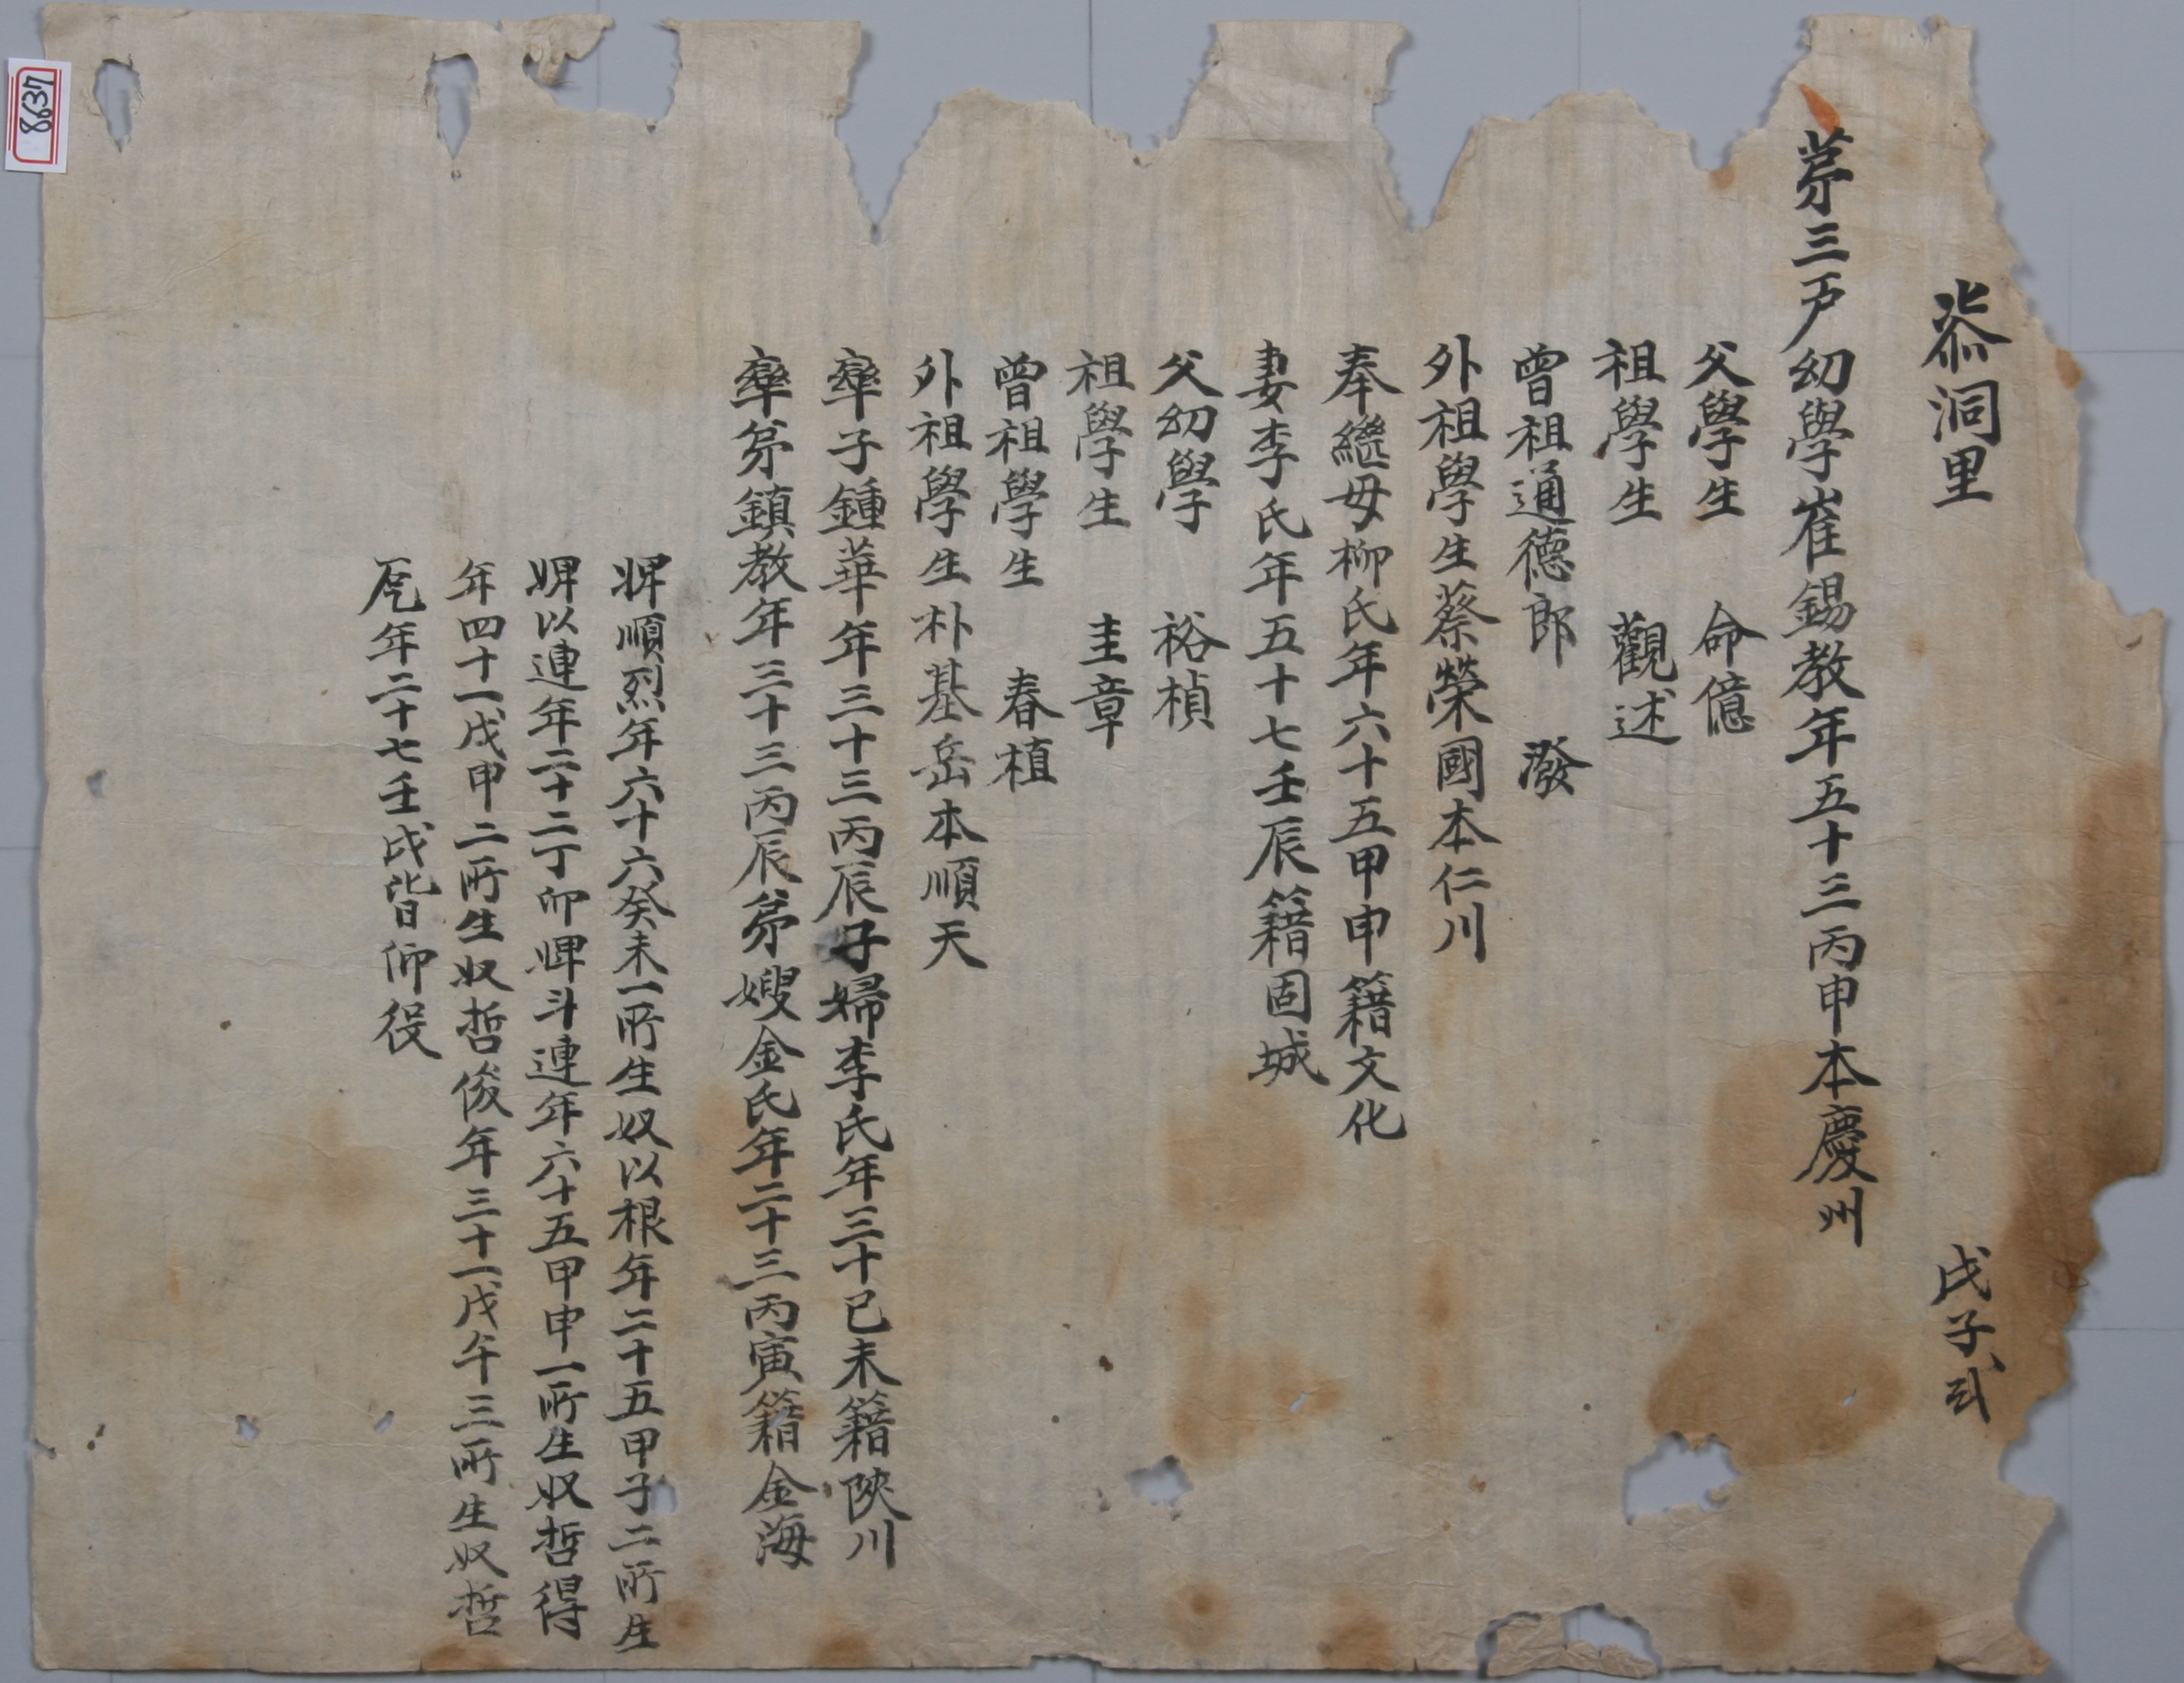 洞里 戊子式
茅三戶幼學崔錫敎年五十三丙申本慶州
父學生 命億
祖學生 觀述
曾祖通德郎 潑
外祖學生蔡榮國本仁川
奉繼母柳氏年六十五甲申籍文化
妻李氏年五十七壬辰籍固城
父幼學 裕楨
祖學生 圭章
曾祖學生 春植
外祖學生朴基岳本順天
率子鍾華年三十三丙辰子婦李氏年三十己未籍陜川
率弟鎮敎年三十三丙辰弟嫂金氏年二十三丙寅籍金海
婢順烈年六十六癸未一所生奴以根年二十五甲子二所生
婢以連年二十二丁卯婢斗連年六十五甲申一所生奴哲得
年四十一戊申二所生奴哲俊年三十一戊午三所生奴哲
年二十七壬戌皆仰役
8637